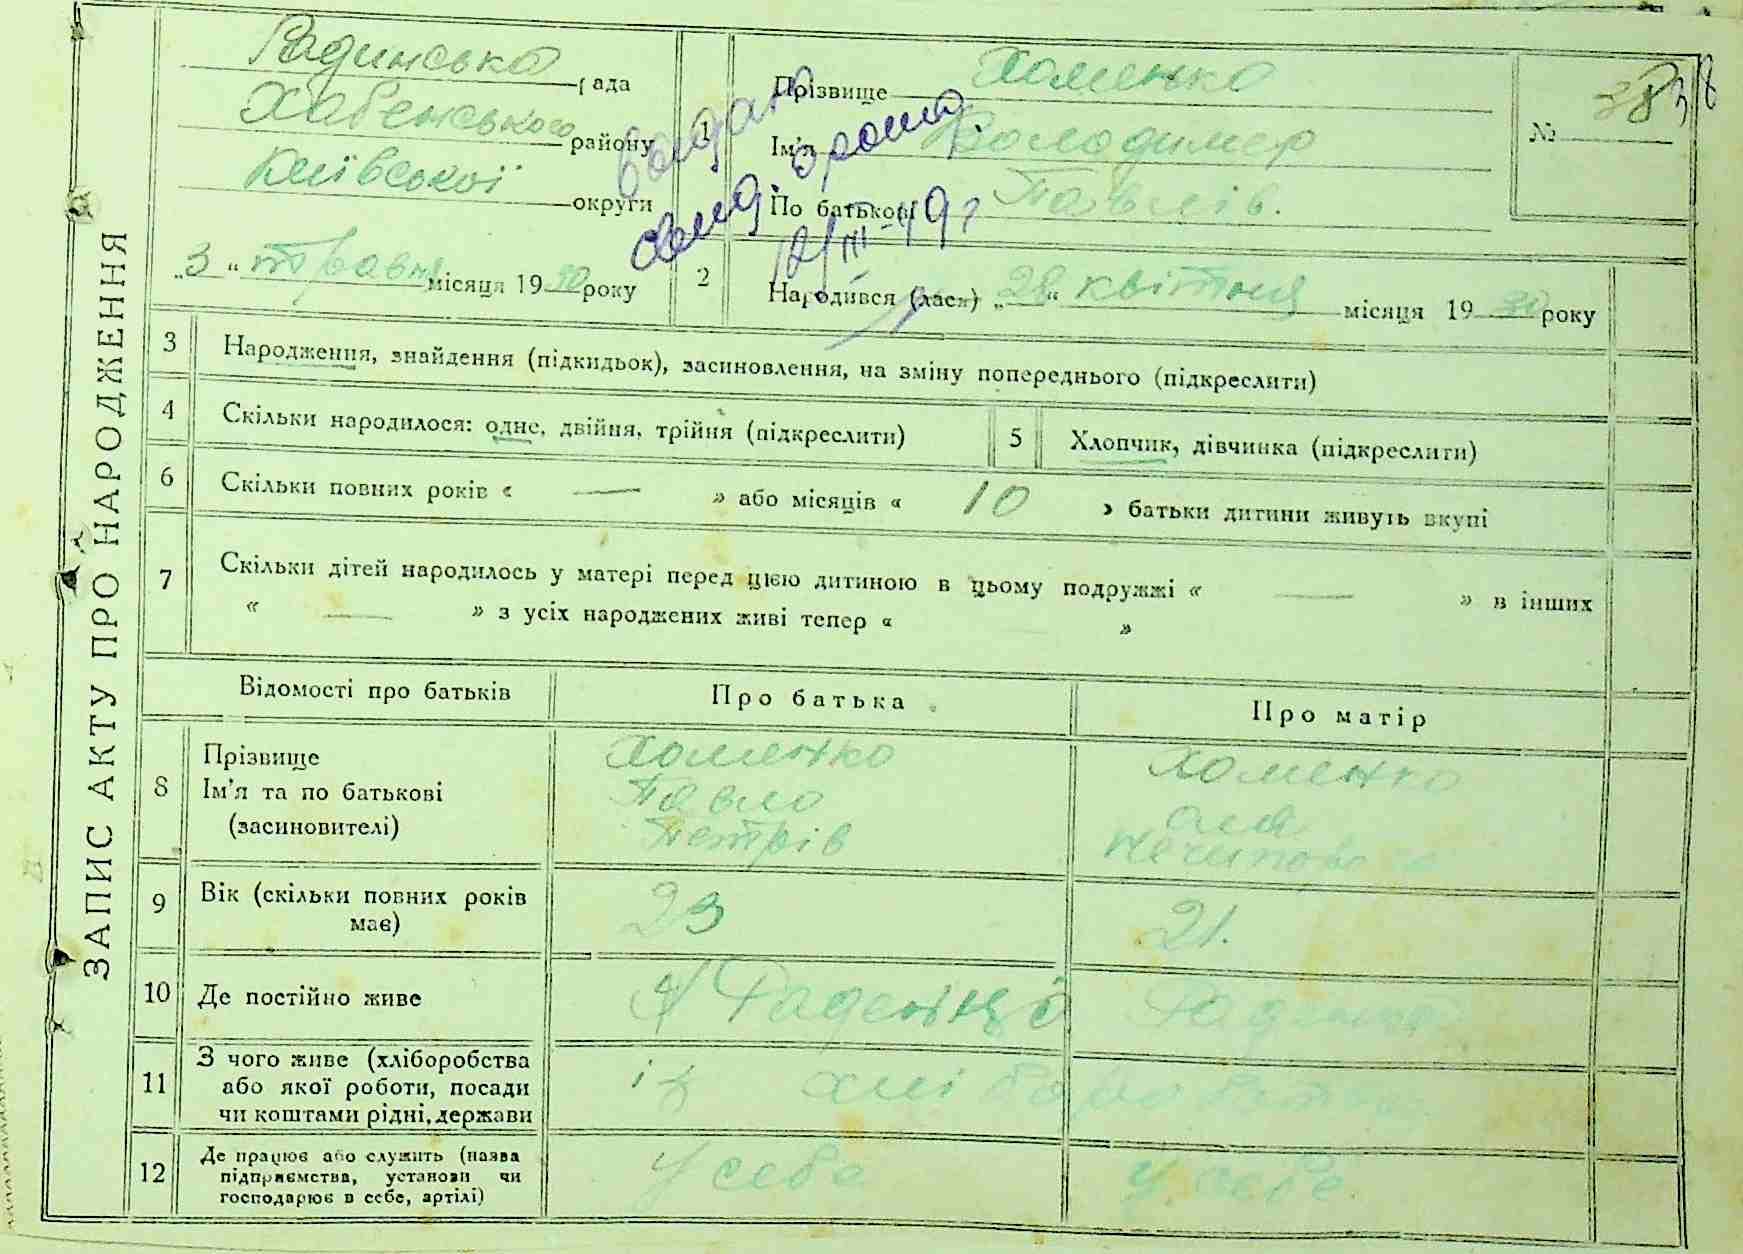 ЗАПИС АКТУ ПРО НАРОДЖЕННЯ
Радинська рада
Хабенського району
Київської округи
„3“ травня місяця 1930 року
1
Прізвище Хоменко
Ім'я Володимер
По батькові Павлів.
№ 38
38
12/III-49г
2
Народився (лася) „28“ квітня місяця 1930 року
3 Народження, знайдення (підкидьок), засиновлення, на зміну попереднього (підкреслити)
4 Скільки народилося: одне, двійня, трійня (підкреслити)
5 Хлопчик, дівчинка (підкреслити)
6 Скільки повних років « — » або місяців « 10 » батьки дитини живуть вкупі
7 Скільки дітей народилось у матері перед цією дитиною в цьому подружжі « — » в інших
« — » з усіх народжених живі тепер « »
Відомості про батьків Про батька Про матір
8 Прізвище Хоменко Хоменко
Ім'я та по батькові Павло
(засиновителі) Петрів
9 Вік (скільки повних років має) 23 21.
10 Де постійно живе
11 З чого живе (хліборобства або якої роботи, посади чи коштами рідні, держави
із хліборобства
12 Де працює або служить (назва підприємства, установи чи господарює в себе, артілі)
у себе у себе